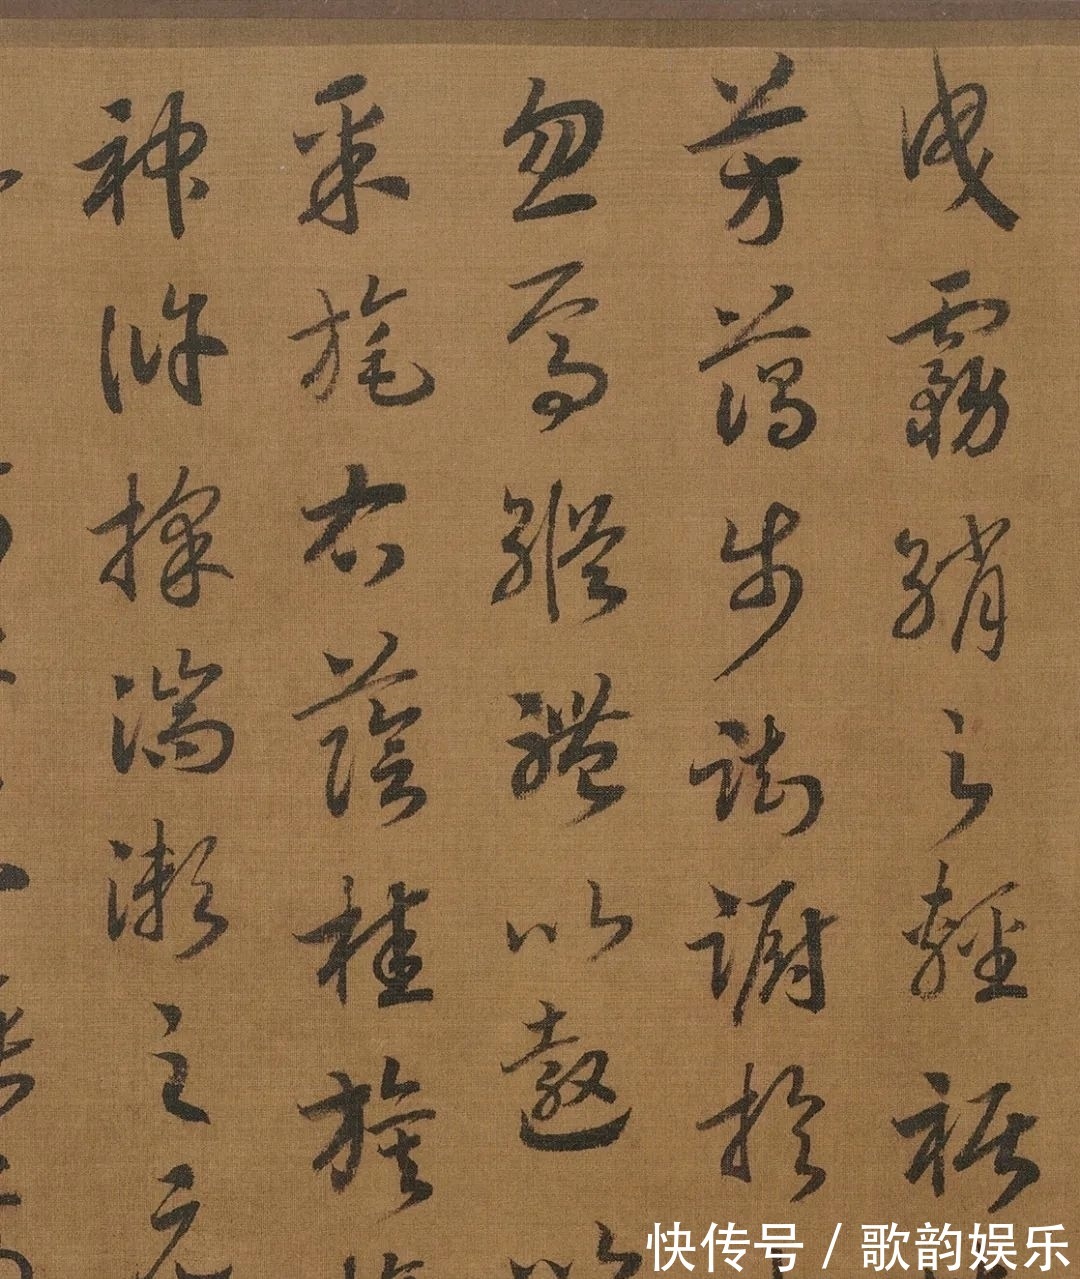 曳霧綃之輕裾
芳藹步踟躕於
忽焉縱體以遨以
采旄右蔭桂旗
神滸採湍瀨之玄
快传号 / 歌韵娱乐